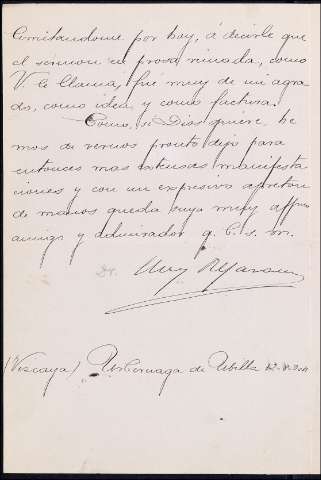 Limitandome por hoy, á decirle que
el sermon en prosa rimada, como
V. lo llama, fué muy de mi agra
do, como idea y como factura.
Como, si Dios quiere, he
mos de vernos pronto dejo para
entonces mas extensas manifesta
ciones y con un expresivo apretón
de manos queda suyo muy affmo
amigo y admirador q. b. s. m.
Dr.
(Vizcaya) de Ubilla